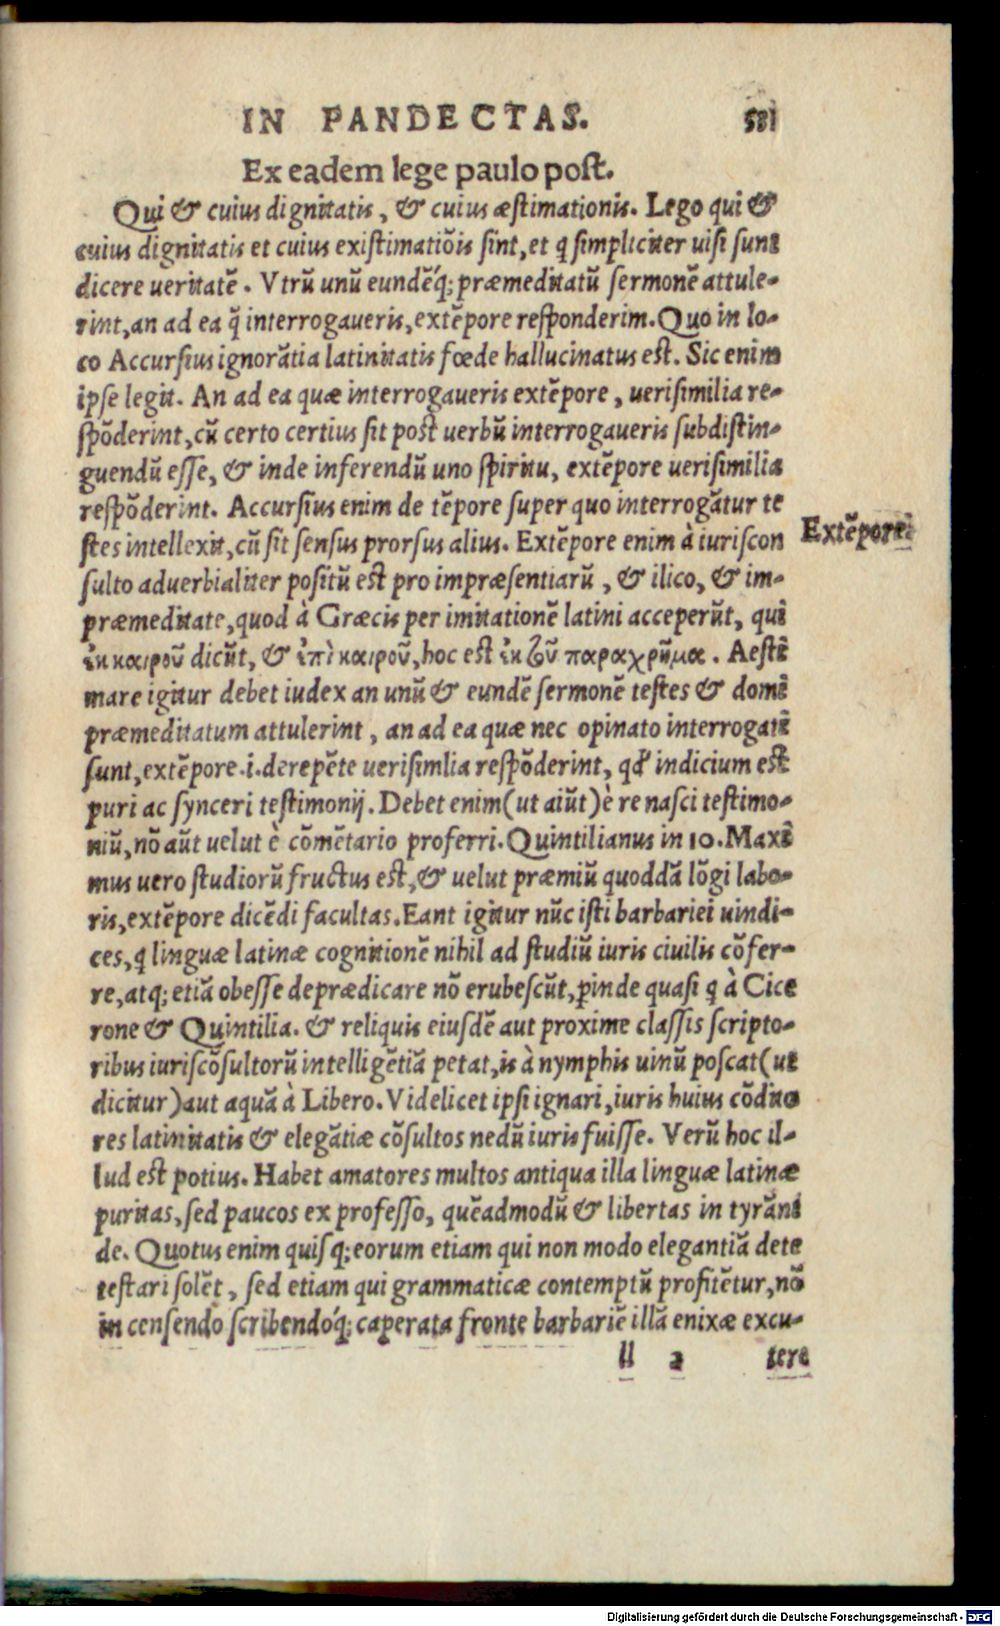 IN PANDECTAS. 531
Ex eadem lege paulo post.
Qui & cuius dignitatis, & cuius æstimationis. Lego qui &
cuius dignitatis et cuius existimatiõis sint, et q̃ simpliciter uisi sunt
dicere ueritatẽ. Vtrũ unũ eundẽq́; præmeditatũ sermonẽ attule-
rint, an ad ea q̃ interrogaueris, extẽpore responderim. Quo in lo-
co Accursius ignorãtia latinitatis fœde hallucinatus est. Sic enim
ipse legit. An ad ea quæ interrogaueris extẽpore, uerisimilia re-
spõderint, cũ certo certius sit post uerbũ interrogaueris subdistin-
guendũ esse, & inde inferendũ uno spiritu, extẽpore uerisimilia
respõderint. Accursius enim de tẽpore super quo interrogãtur te
stes intellexit, cũ sit sensus prorsus alius. Extẽpore enim à iuriscon
Extẽpore
sulto aduerbialiter positũ est pro impræsentiarũ, & ilico, & im-
præmeditate, quod à Græcis per imitationẽ latini acceperũt, qui
ἐκ καιροῦ dicũt, & ἐπὶ καιροῦ, hoc est ἐκ τοῦ παραχρῆμα. Aesti
mare igitur debet iudex an unũ & eundẽ sermonẽ testes & domi
præmeditatum attulerint, an ad ea quæ nec opinato interrogati
sunt, extẽpore .i. derepẽte uerisimlia respõderint, qđ indicium est
puri ac synceri testimonij. Debet enim (ut aiũt) è re nasci testimo-
niũ, nõ aũt uelut è cõmẽtario proferri. Quintilianus in 10. Maxi
mus uero studiorũ fructus est, & uelut præmiũ quoddã lõgi labo-
ris, extẽpore dicẽdi facultas. Eant igitur nũc isti barbariei uindi-
ces, q̃ linguæ latinæ cognitionẽ nihil ad studiũ iuris ciuilis cõfer-
re, atq; etiã obesse deprædicare nõ erubescũt, ꝑinde quasi q̃ à Cice
rone & Quintilia. & reliquis eiusdẽ aut proxime classis scripto-
ribus iuriscõsultorũ intelligẽtiã petat, is à nymphis uinũ poscat (ut
dicitur) aut aquã à Libero. Videlicet ipsi ignari, iuris huius cõdito
res latinitatis & elegãtiæ cõsultos nedũ iuris fuisse. Verũ hoc il-
lud est potius. Habet amatores multos antiqua illa linguæ latinæ
puritas, sed paucos ex professo, quẽadmodũ & libertas in tyrãni
de. Quotus enim quisq; eorum etiam qui non modo elegantiã dete
testari solẽt, sed etiam qui grammaticæ contemptũ profitẽtur, nõ
in censendo scribendóq́; caperata fronte barbariẽ illã enixæ excu-
ll 2 tere
Digitalisierung gefördert durch die Deutsche Forschungsgemeinschaft - DFG